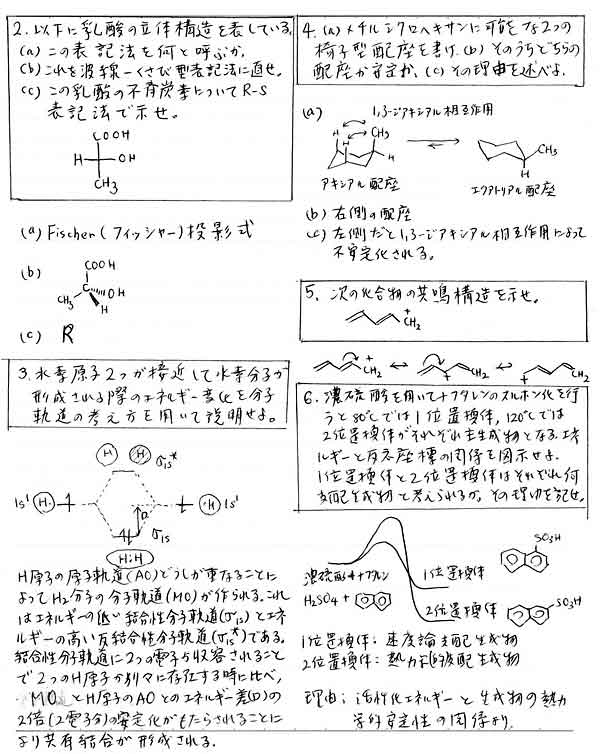 2. 以下に乳酸の立体構造を表している。
(a) この表記法を何と呼ぶか。
(b) これを波線−くさび型表記法に直せ。
(c) この乳酸の不斉炭素についてR-S
表記法で示せ。
COOH
H
OH
CH3
(a) Fischer (フィッシャー) 投影式
(b)
COOH
C
CH3
OH
H
(c) R
3. 水素原子2つが接近して水素分子が
形成される際のエネルギー変化を分子
軌道の考え方を用いて説明せよ。
H H σ1s*
1s H· ·H 1s
D
σ1s
H:H
H原子の原子軌道(AO)どうしが重なることに
よってH2分子の分子軌道(MO)が作られる。これ
はエネルギーの低い結合性分子軌道(σ1s)とエネ
ルギーの高い反結合性分子軌道(σ1s*)である。
結合性分子軌道に2つの電子が収容されること
で2つのH原子が別々に存在する時に比べ、
MOとH原子のAOとのエネルギー差(D)の
2倍(2電子分)の安定化がもたらされることに
より共有結合が形成される。
4. (a) メチルシクロヘキサンに可能な2つの
椅子型配座を書け。(b) そのうちどちらの
配座が安定か。(c) その理由を述べよ。
(a)
1,3-ジアキシアル相互作用
H
H
CH3
H
CH3
H
アキシアル配座
エクアトリアル配座
(b) 右側の配座
(c) 左側だと1,3-ジアキシアル相互作用によって
不安定化される。
5. 次の化合物の共鳴構造を示せ。
+
CH2
+
CH2
+
CH2
+
CH2
6. 濃硫酸を用いてナフタレンのスルホン化を行
うと80℃では1位置換体, 120℃では
2位置換体がそれぞれ主生成物となる。エネ
ルギーと反応座標の関係を図示せよ。
1位置換体と2位置換体はそれぞれ何
支配生成物と考えられるか。その理由を記せ。
SO3H
濃硫酸+ナフタレン
1位置換体
H2SO4 +
2位置換体
SO3H
1位置換体: 速度論支配生成物
2位置換体: 熱力学的支配生成物
理由: 活性化エネルギーと生成物の熱力
学的安定性の関係より.